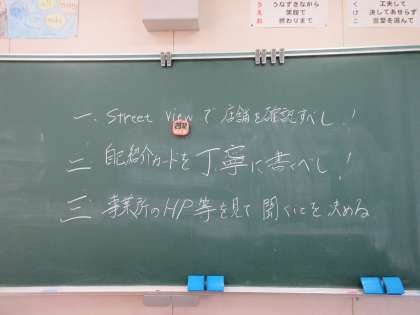 う うなずきながら
え 笑顔で
お 終わりまで
く 工夫して
け 決してあせらず
こ 言葉を選んで
一、Street Viewで店舗を確認すべし!
二 自己紹介カードを丁寧に書くべし!
三 事業所のHP等を見て聞くことを決める